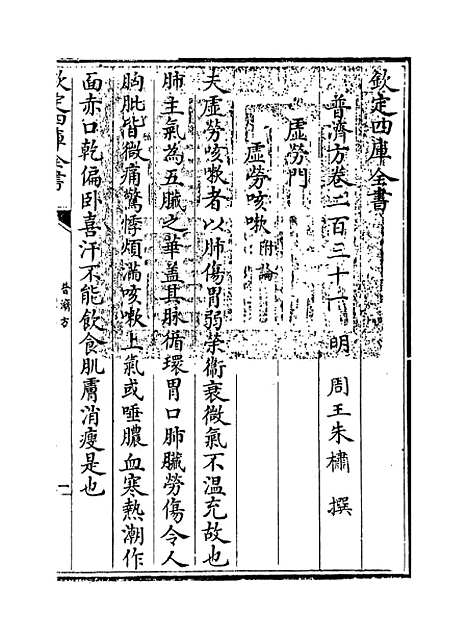 欽定四庫全書
普濟方卷二百三十一　明　周王朱橚　撰
虛勞門
虛勞咳嗽附論
夫虛勞咳嗽者以肺傷胃弱榮衞衰微氣不溫充故也
肺主氣為五臓之華蓋其脉循環胃口肺臓勞傷令人
胸肶皆微痛驚悸煩滿咳嗽上氣或唾膿血寒熱潮作
面赤口乾偏卧喜汗不能飲食肌膚消瘦是也
欽定四庫全書
普濟方
一